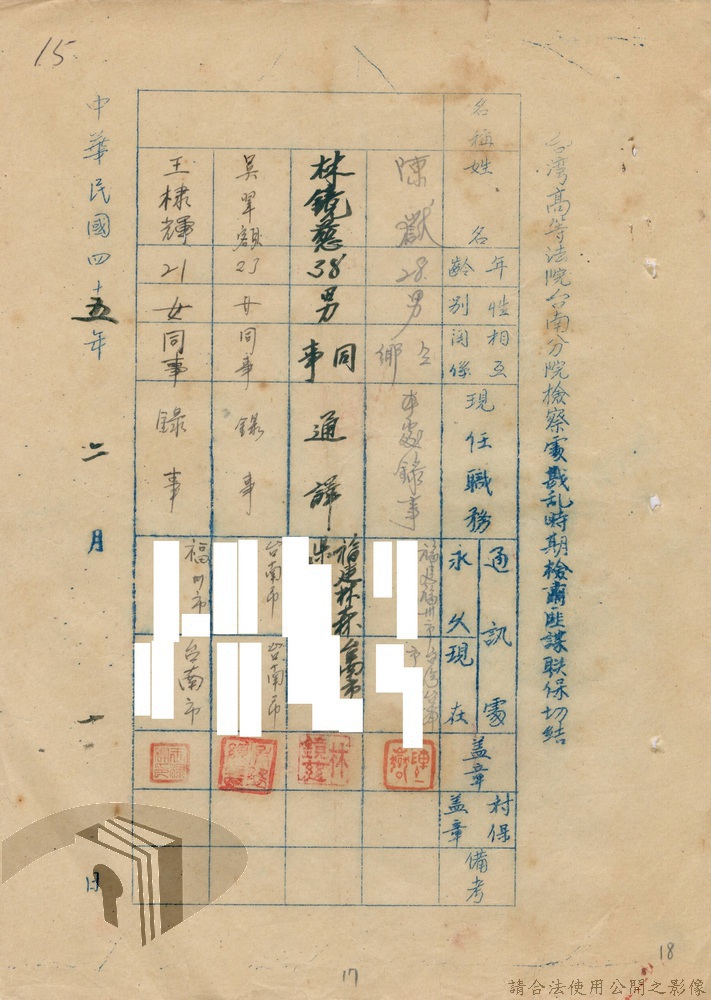 15
台湾高等法院台南分院檢察處戡乱時期檢肅匪諜联保切結
名稱姓名
年齡
性別
相互関係
現任職務
通訊處
永久
現在
盖章
村保盖章
備考
陳獻
28
男
本處錄事
林鏡慈
38
男
同事
通譯
福建林森
林鏡慈
吳翠
23
女
同事
錄事
台南市
台南市
王棣輝
21
女
同事
錄事
福州市
台南市
中華民國四十五年二月 日
17
18
請合法使用公開之影像